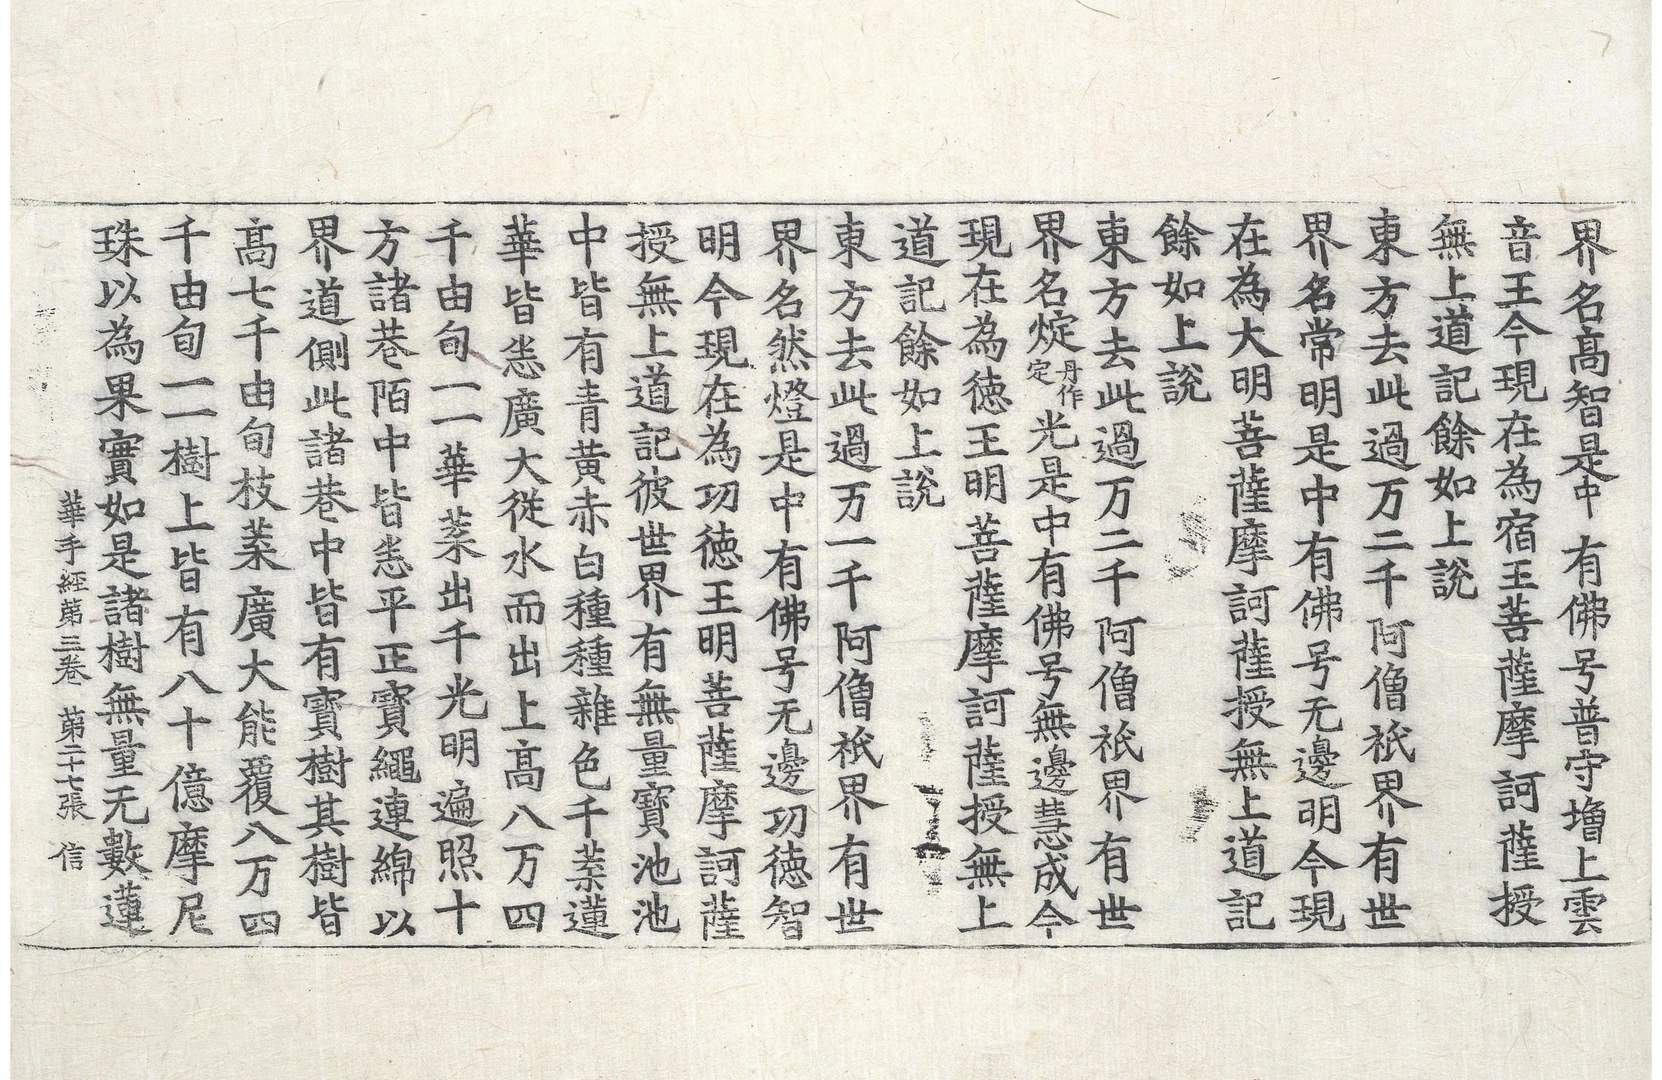 界名高智是中有佛号普守増上雲
音王今現在為宿王菩薩摩訶薩授
無上道記餘如上說
東方去此過万二千阿僧祇界有世
界名常明是中有佛号无邊明今現
在為大明菩薩摩訶薩授無上道記
餘如上說
東方去此過万二千阿僧祇界有世
界名㝎丹作定光是中有佛号無邊慧成今
現在為德王明菩薩摩訶薩授無上
道記餘如上說
東方去此過万一千阿僧祇界有世
界名然燈是中有佛号无邊功德智
明今現在為功德王明菩薩摩訶薩
授無上道記彼世界有無量寶池池
中皆有青黃赤白種種雜色千葉蓮
華皆悉廣大從水而出上高八万四
千由旬一一華葉出千光明遍照十
方諸巷陌中皆悉平正寶繩連綿以
界道側此諸巷中皆有寶樹其樹皆
高七千由旬枝葉廣大能覆八万四
千由旬一一樹上皆有八十億摩尼
珠以為果實如是諸樹無量无數蓮
華手經第三卷 第二十七張 信